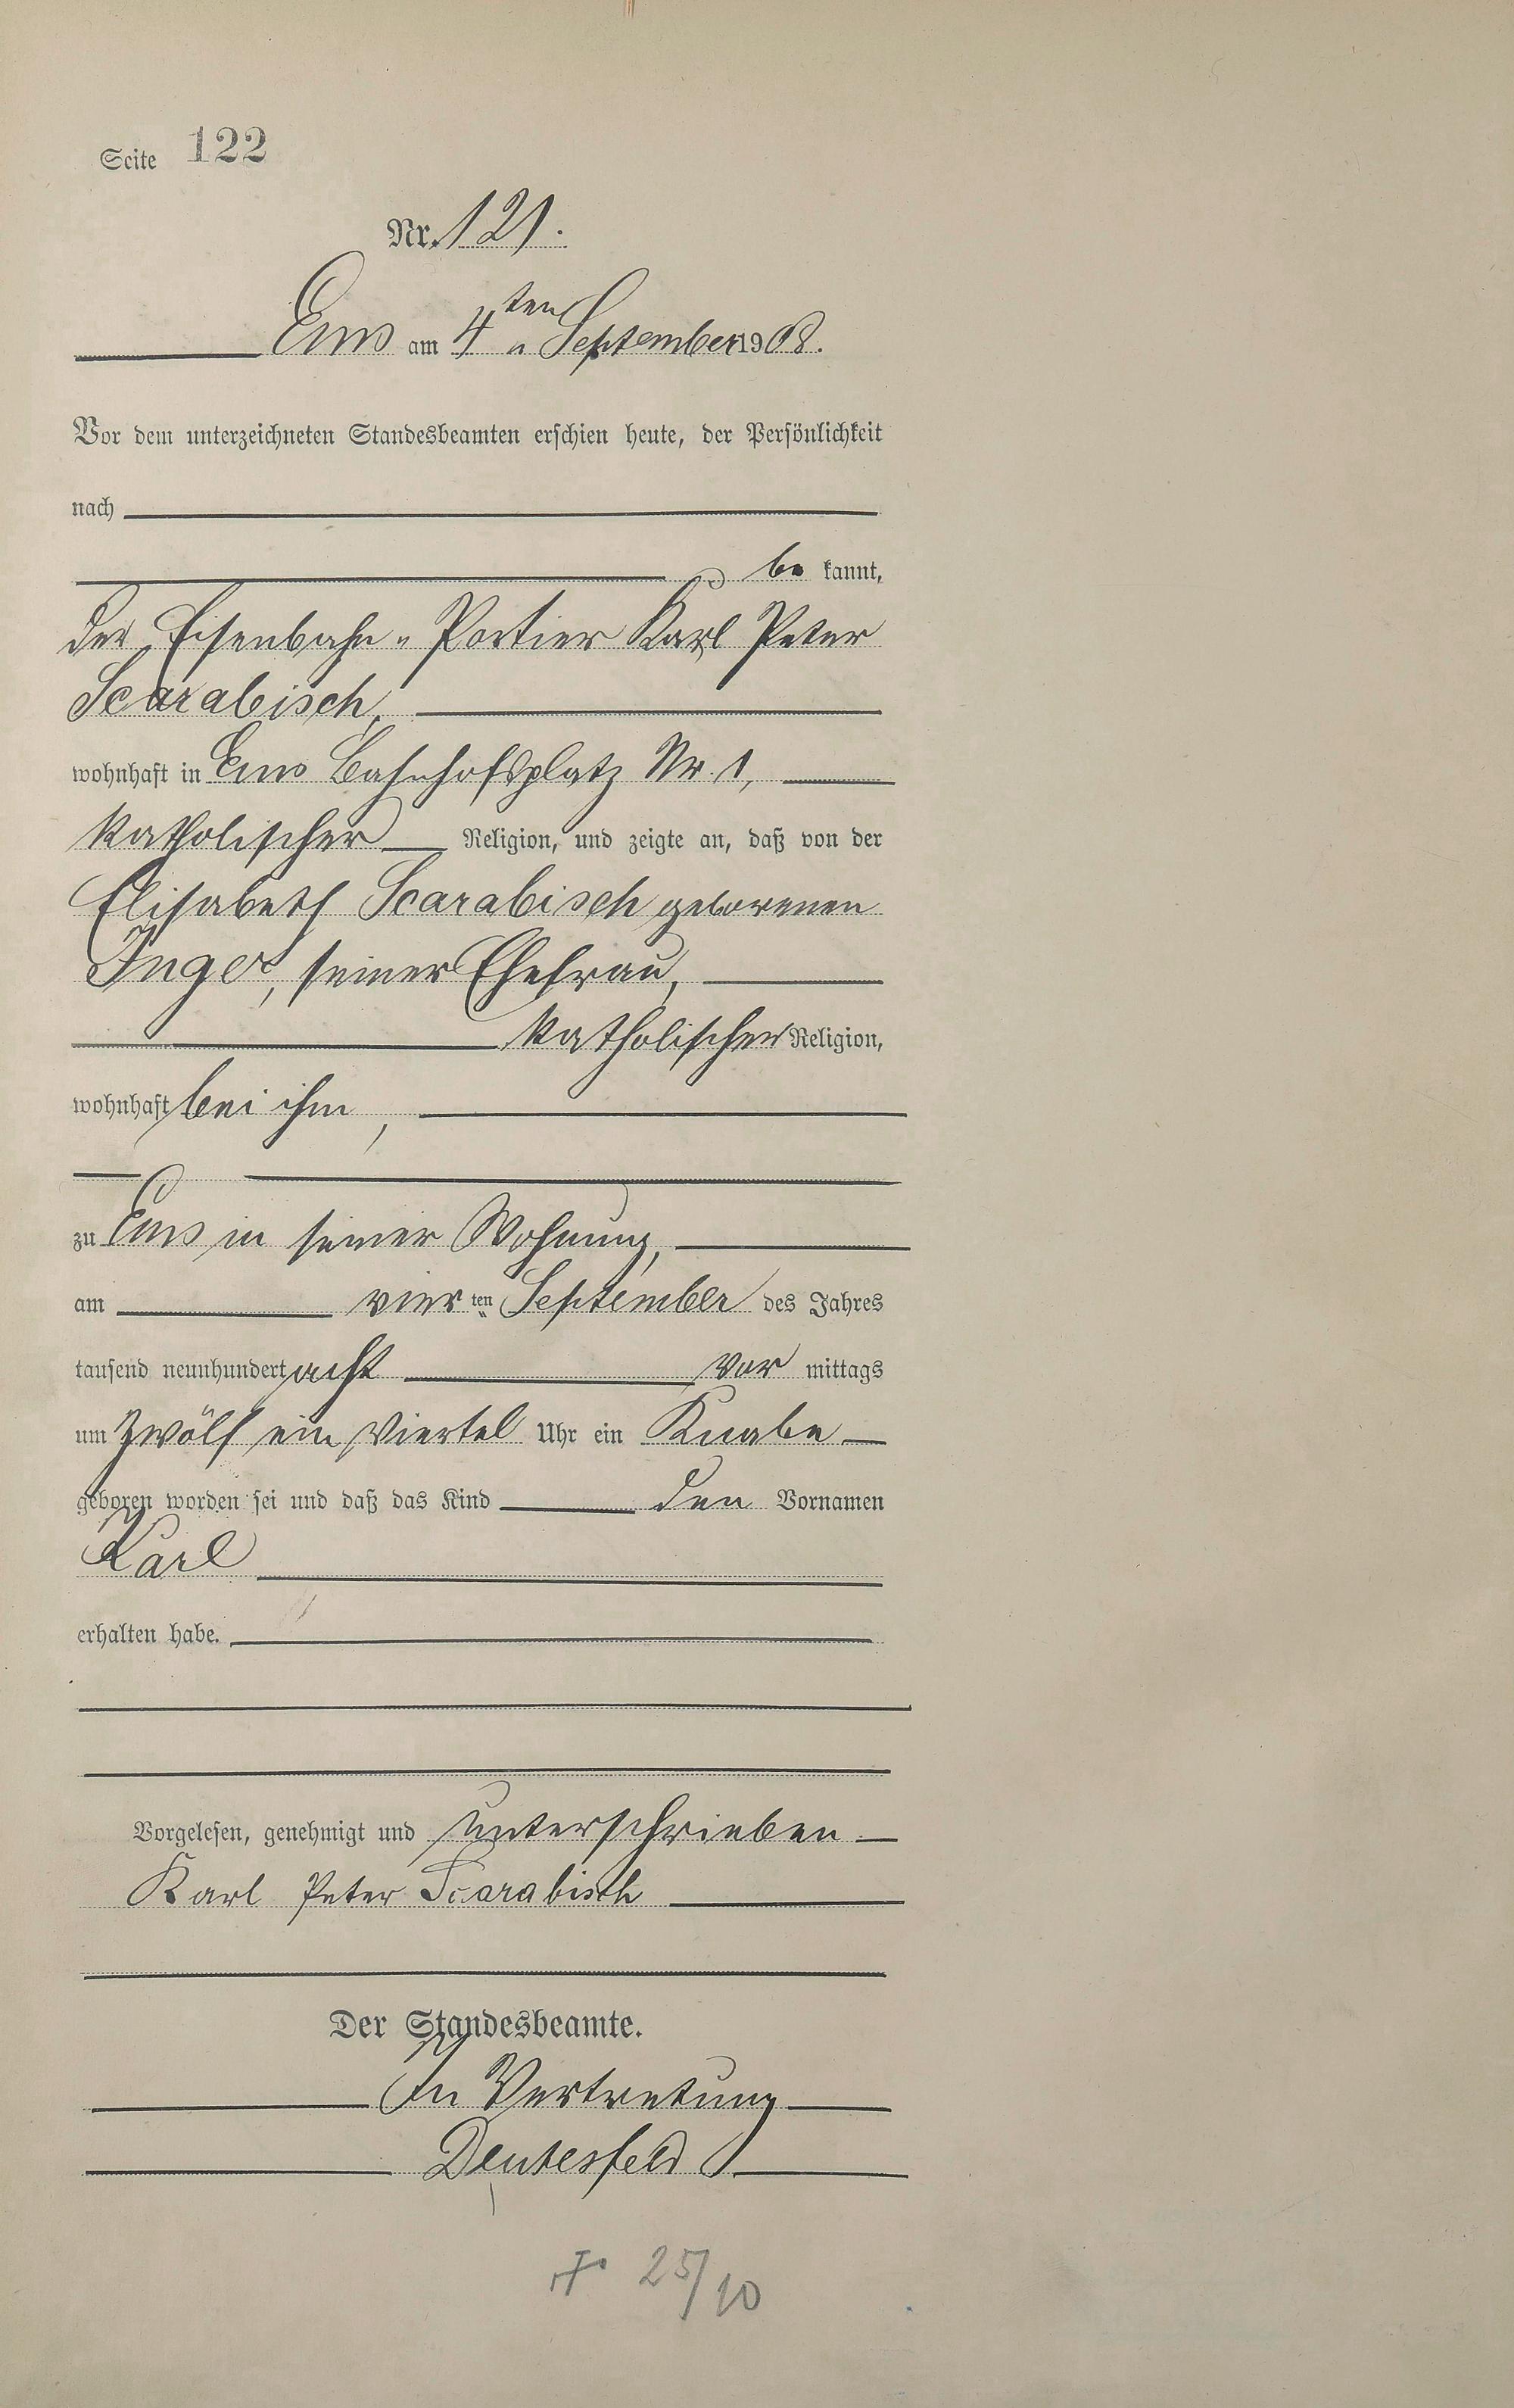 Seite 122
Nr. 121.
Ems am 4ten September 1908.
Vor dem unterzeichneten Standesbeamten erschien heute, der Persönlichkeit
nach
be kannt,
der Eisenbahn-Portier Karl Peter
Scarabisch,
wohnhaft in Ems Bahnhofsplatz Nr. 1,
katholischer Religion, und zeigte an, daß von der
Elisabeth Scarabisch geborenen
Inger, seiner Ehefrau,
katholischer Religion,
wohnhaft bei ihm,
zu Ems in seiner Wohnung,
am vierten September des Jahres
tausend neunhundert acht vor mittags
um zwölf ein Viertel Uhr ein Knabe
geboren worden sei und daß das Kind den Vornamen
Karl
erhalten habe.
Vorgelesen, genehmigt und unterschrieben
Karl Peter Scarabisch
Der Standesbeamte.
In Vertretung
Deutesfeld
25/10